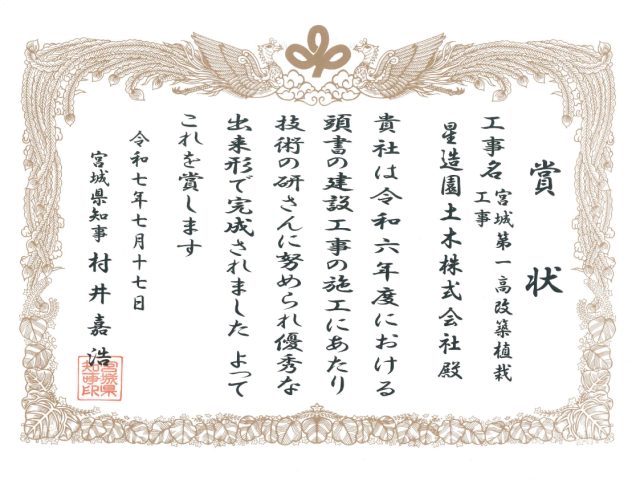 賞状
工事名 宮城第一高改築植栽
工事
星造園土木株式会社殿
貴社は令和六年度における
頭書の建設工事の施工にあたり
技術の研さんに努められ優秀な
出来形で完成されました よって
これを賞します
令和七年七月十七日
宮城県知事 村井嘉浩
宮城県
知事印